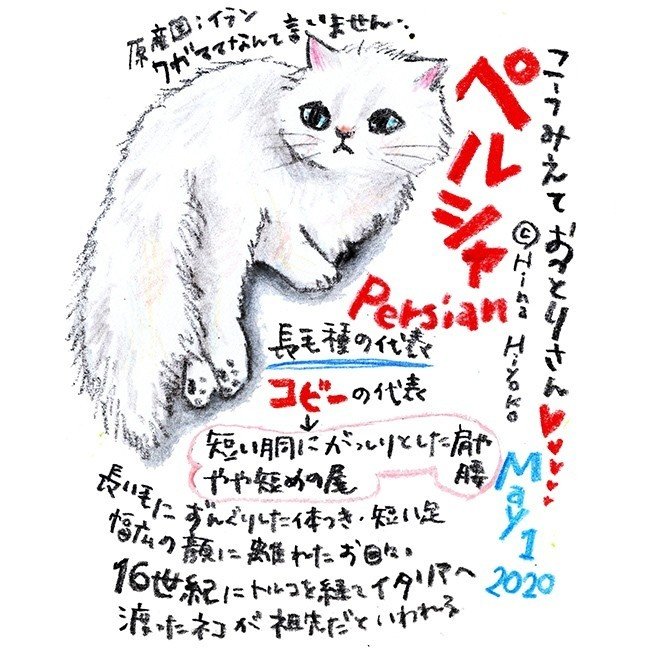 原産国:イラン
ワガママなんて言いません…
ペルシャ
Persian
こーうみえて おっとりさん
© Hina Hiyoko
May 1
2020
長毛種の代表
コビーの代表
↓
短い胴にがっしりとした肩や腰
やや短めの尾
長い毛にずんぐりした体つき・短い足
幅広の顔に離れたお目々
16世紀にトルコを経てイタリアへ
渡ったネコが祖先だといわれる